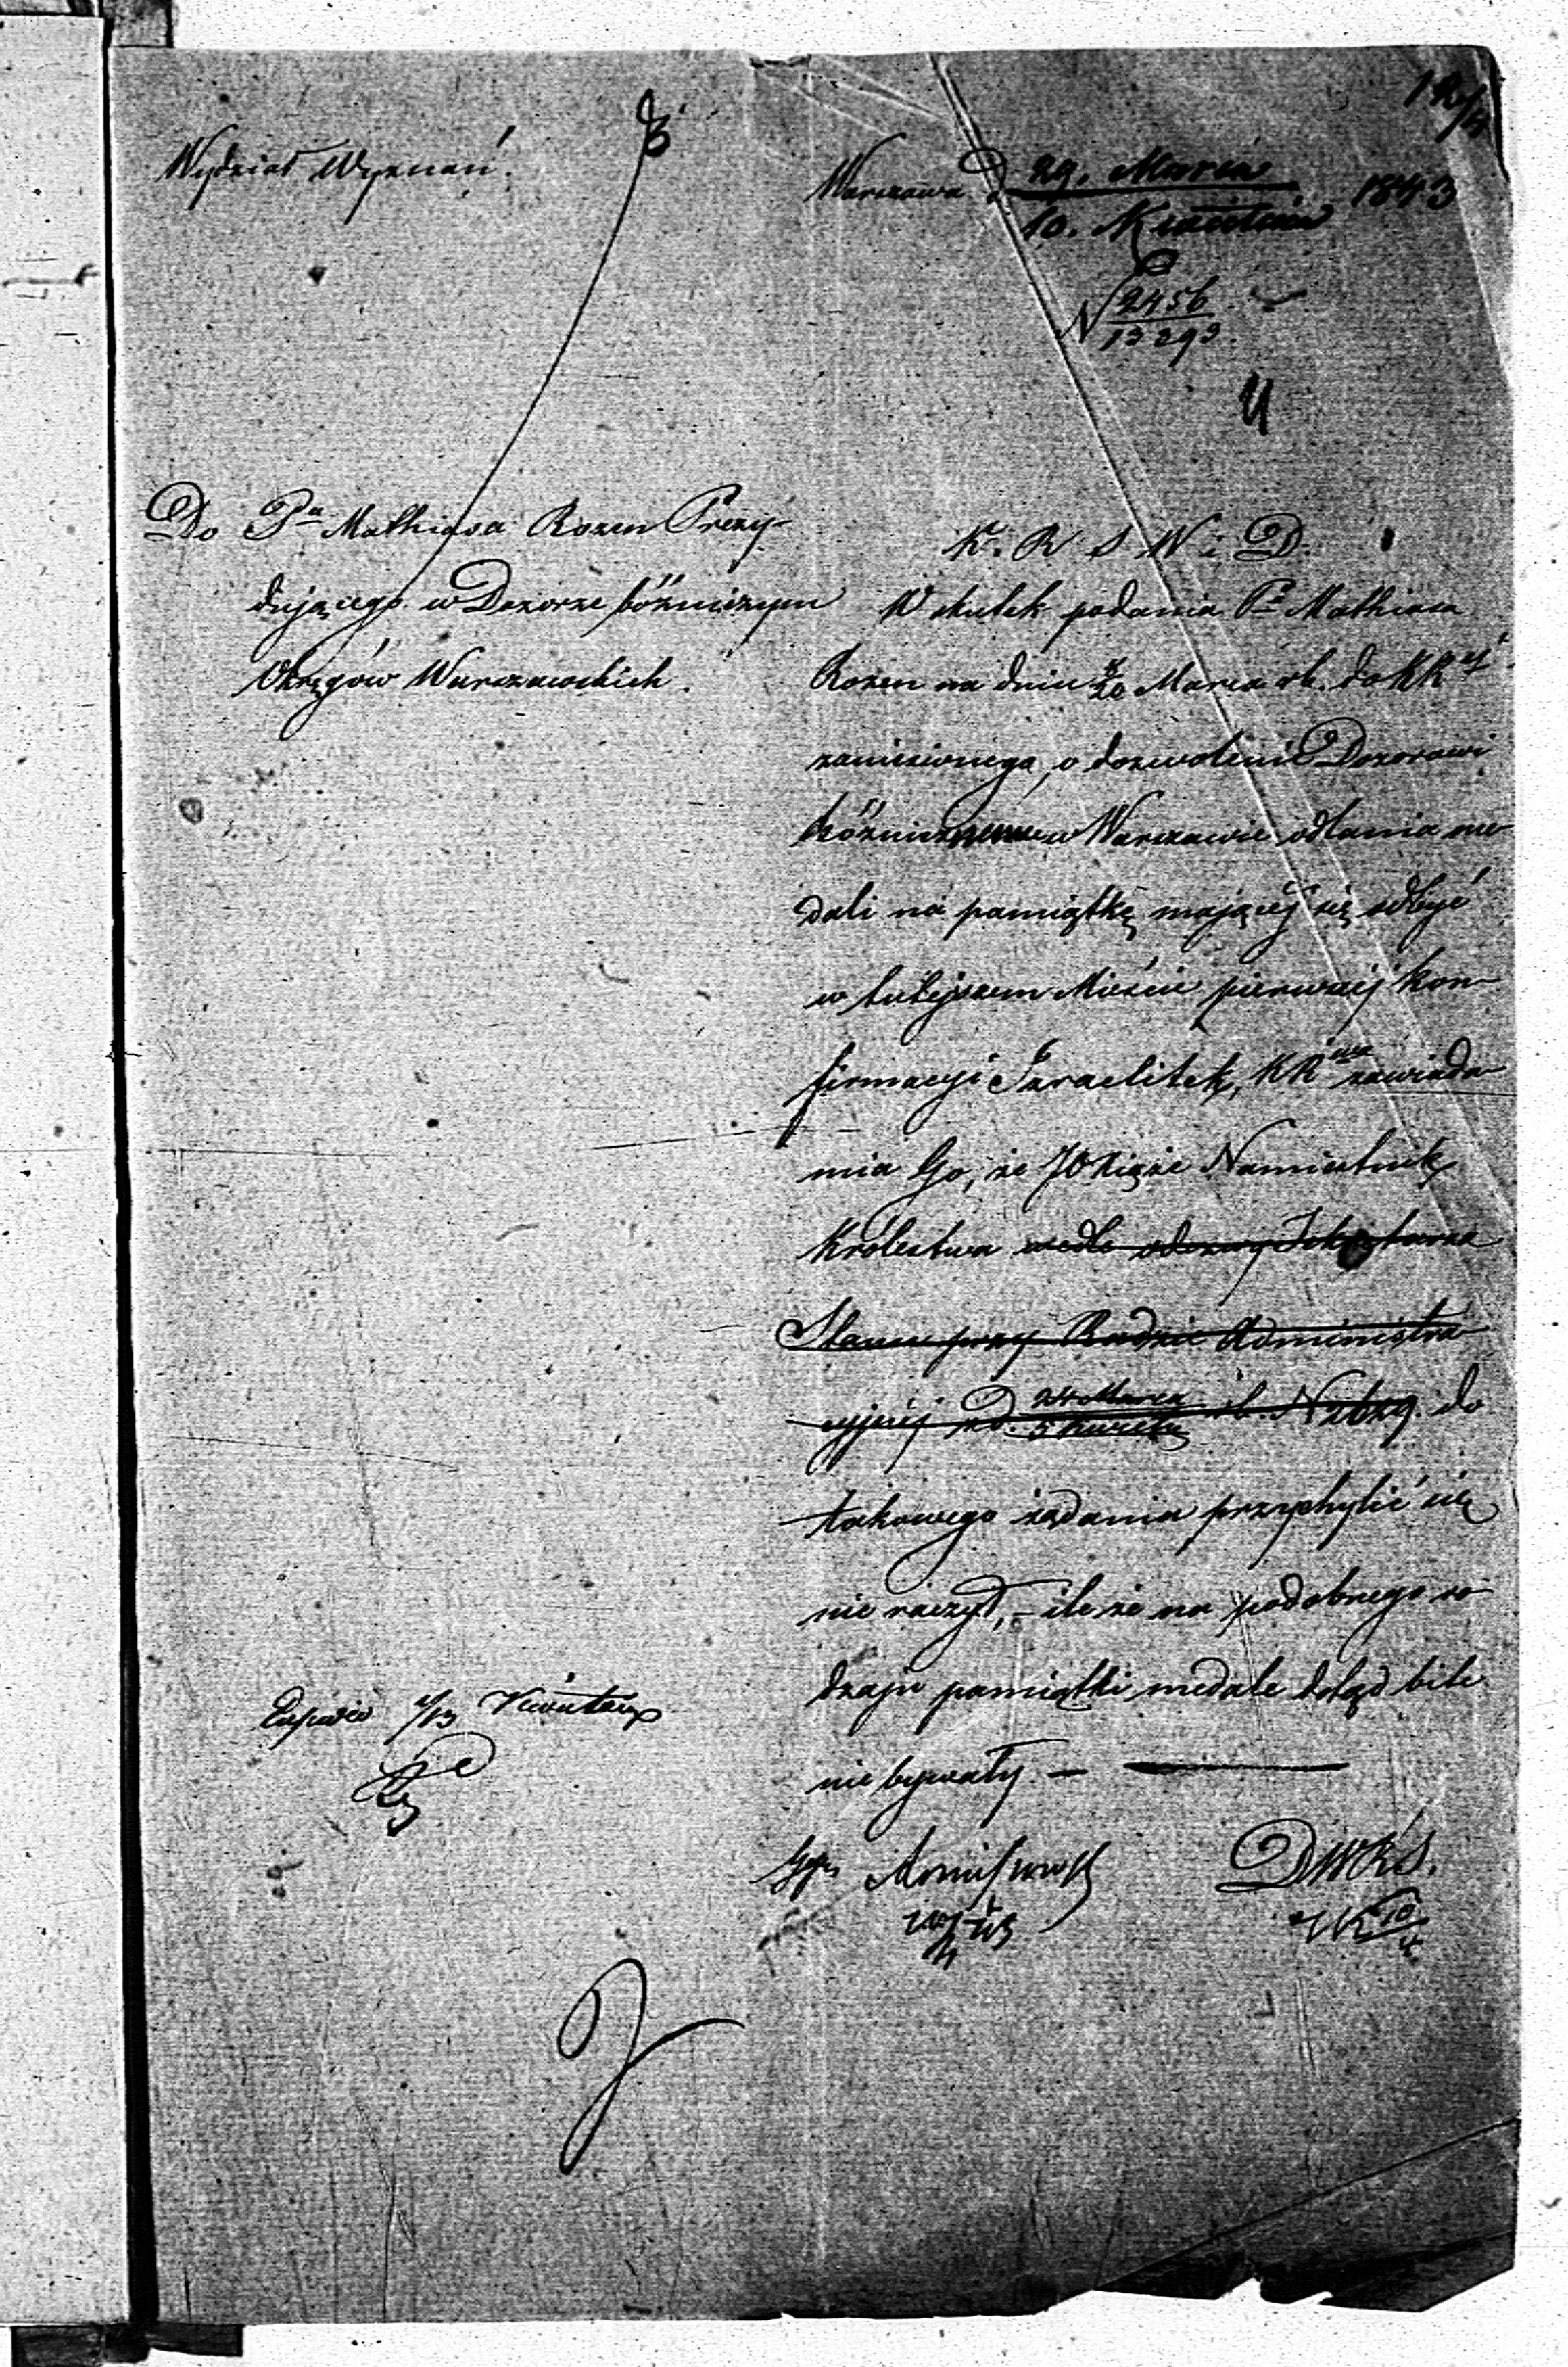 12/4
Wydział Wyznań.
Warszawa d 29. Marca 1843
10. Kwietnia
N 2456
13293.
Do Pa Mathiasa Rozen Prezy-
dującego w Dozorze bóżniczym
Okręgów Warszawskich.
K. R S W i D.
W skutek podania Pa Mathiasa
Rozen na dniu 8/20 Marca rb. do KRyi
zaniesionego, o dozwolenie Dozorowi
bóżniczemu w Warszawie odlania me-
dali na pamiątkę mającej się odbyć
w tutejszem Mieście pierwszej kon-
firmacyi Izraelitek, KRowa zawiada-
mia Go, że JO Xiąże Namiestnik
Królestwa wedle odezwy Sekretarza
Stanu przy Radzie Administra-
cyjnej z d. 24 Marca rb. N do
5 Kwietn
takowego żądania przychylić się
nie raczył, – ile że na podobnego ro-
dzaju pamiątki medale dotąd bite
nie bywały. —
Kwietnia
DWRS.